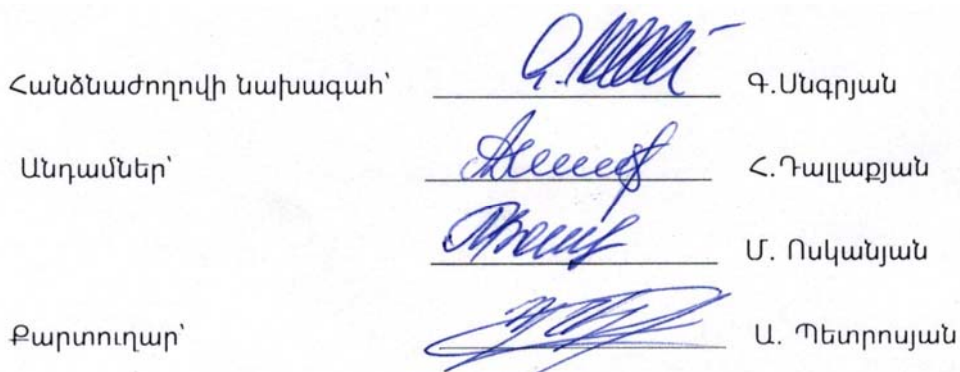 Հանձնաժողովի նախագահ՝ Գ.Սնգրյան
Անդամներ՝ Հ.Դալլաքյան
Մ. Ոսկանյան
Քարտուղար՝ Ա. Պետրոսյան